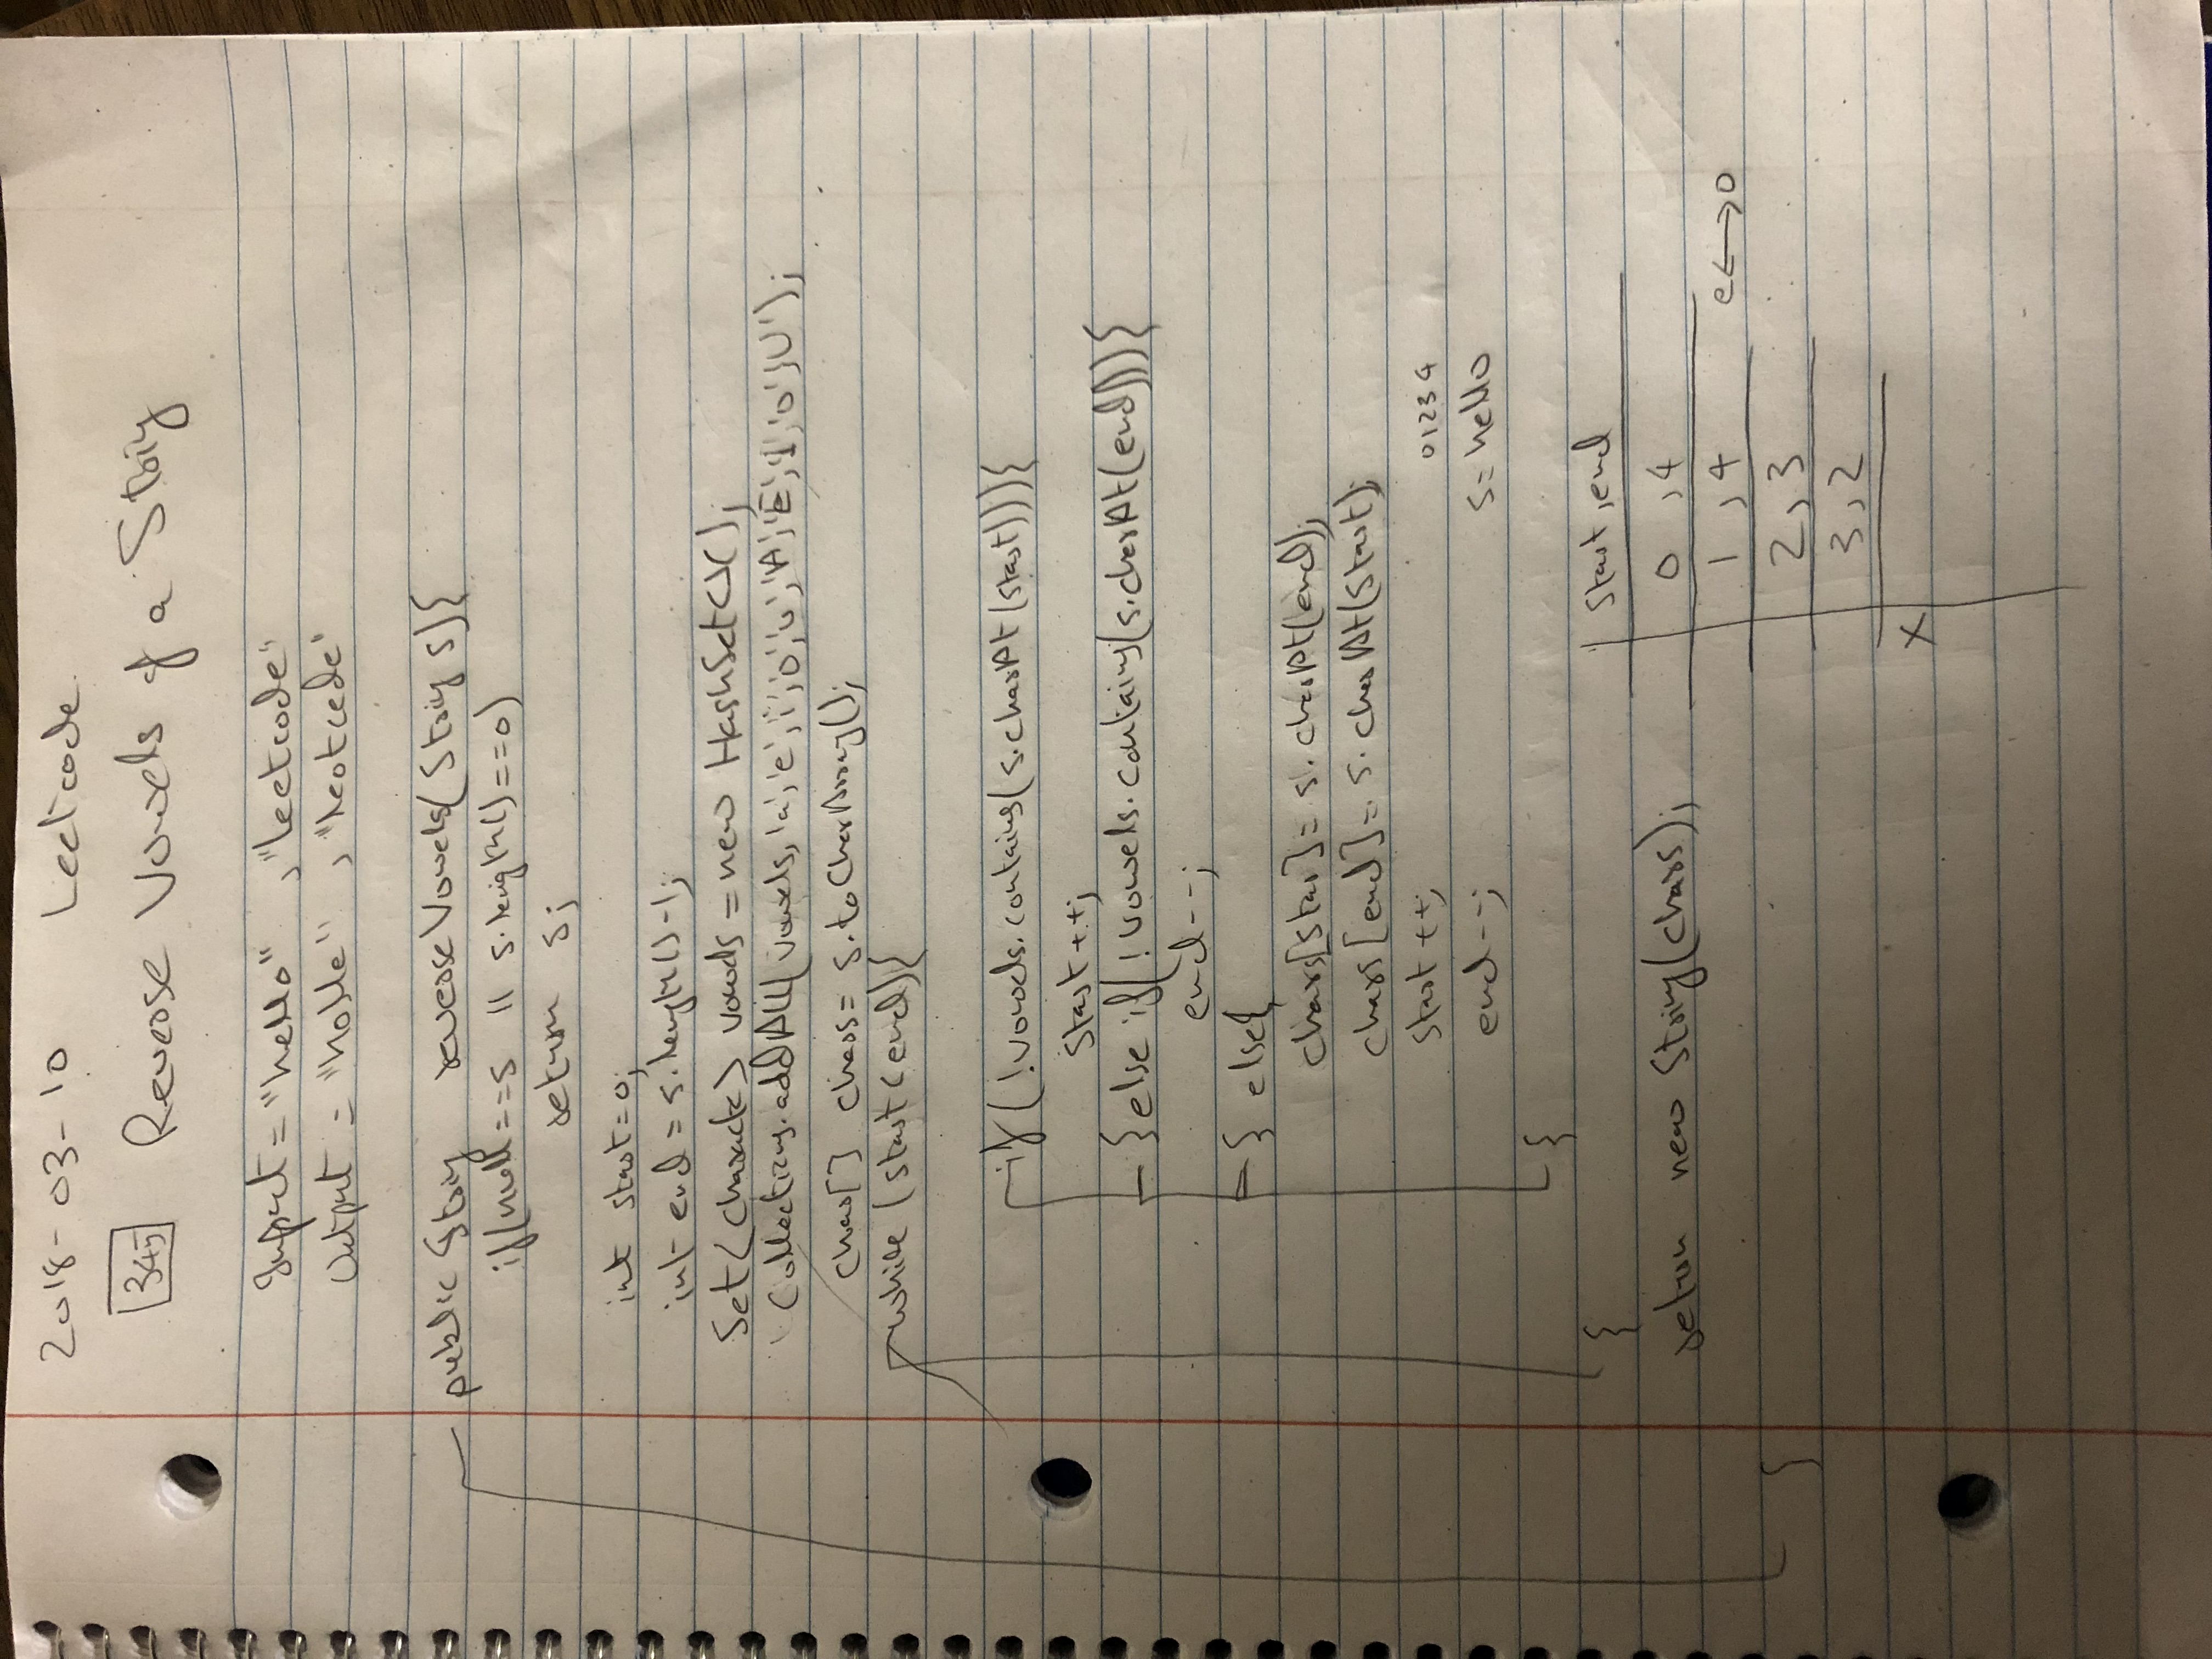 2018-03-10 Leetcode.
345 Reverse Vowels of a String
Input = "hello" , "leetcode"
Output = "holle" , "leotcede"
public String reverseVowels(String s){
if(null==s || s.length()==0)
return s;
int start=0;
int end = s.length()-1;
Set<Character> vowels = new HashSet<>();
Collections.addAll(vowels,'a','e','i','o','u','A','E','I','O','U');
char[] chars= s.toCharArray();
while (start<end){
if(!vowels.contains(s.charAt(start))){
start++;
}else if(!vowels.contains(s.charAt(end))){
end--;
} else{
chars[star]= s.charAt(end);
chars[end]= s.charAt(start);
start++;
01234
end--;
s= hello
}
}
start,end
return new String(chars);
0 ,4
1 ,4 e<->o
}
2,3
3,2
X